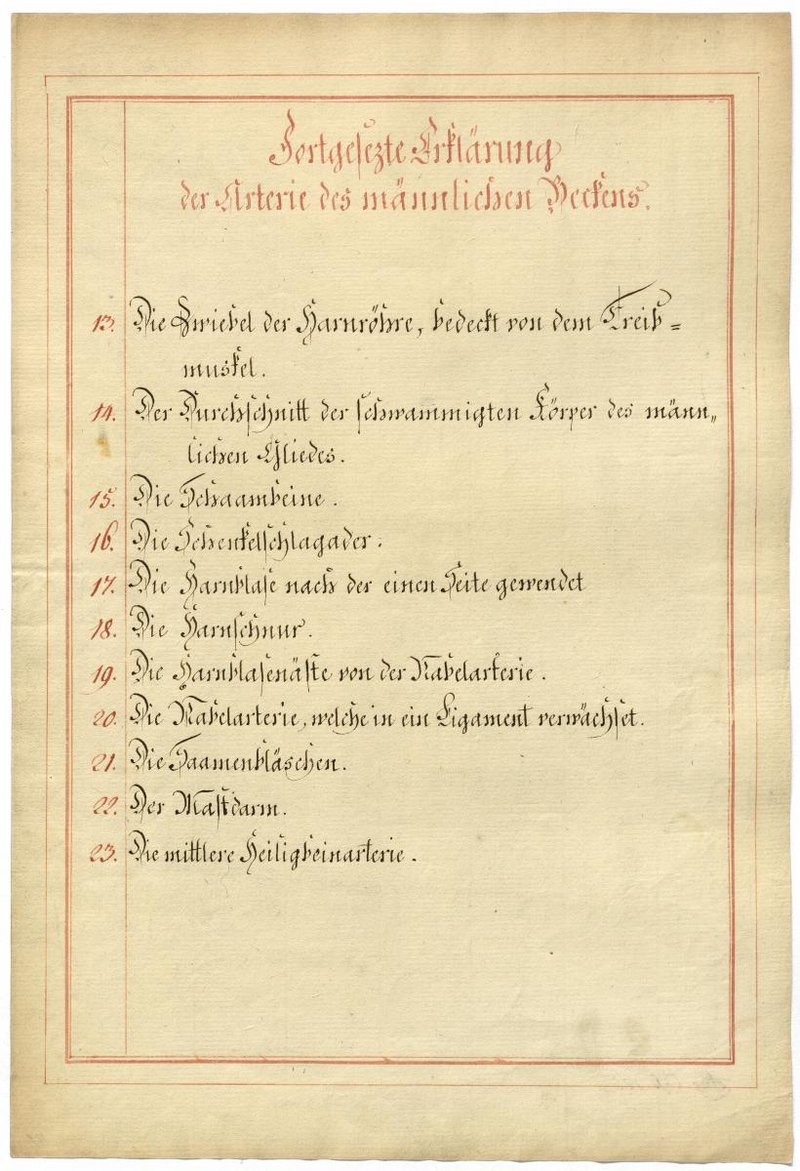 Fortgesezte Erklärung
der Arterie des männlichen Beckens.
13. Die Zwiebel der Harnröhre, bedeckt von dem Treib=
muskel.
14. Der Durchschnitt der schwammigten Körper des männ„
lichen Gliedes.
15. Die Schaambeine.
16. Die Schenkelschlagader.
17. Die Harnblase nach der einen Seite gewendet
18. Die Harnschnur.
19. Die Harnblasenäste von der Nabelarterie.
20. Die Nabelarterie, welche in ein Ligament verwächset.
21. Die Saamenbläschen.
22. Der Mastdarm.
23. Die mittlere Heiligbeinarterie.